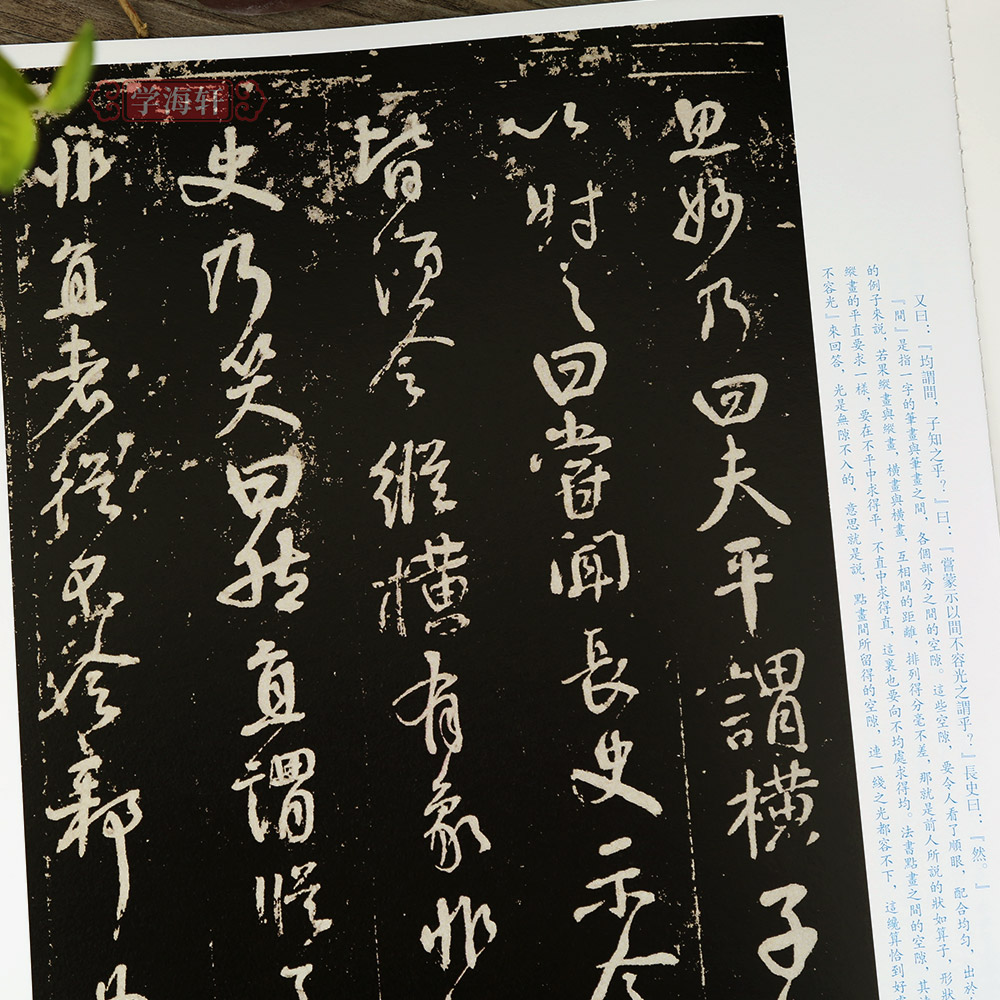 又曰：『均謂間，子知之乎？』曰：『嘗蒙示以間不容光之謂乎？』長史曰：『然。』
『間』是指一字的筆畫與筆畫之間，各個部分之間的空隙。這些空隙，要令人看了順眼，配合均勻，出於
的例子來說，若果縱畫與縱畫，橫畫與橫畫，互相間的距離，排列得分毫不差，那就是前人所說的狀如算子，形狀
縱畫的平直要求一樣，要在不平中求得平，不直中求得直，這裏也要向不均處求得均。法書點畫之間的空隙，其
不容光』來回答，光是無隙不入的，意思就是說，點畫間所留得的空隙，連一綫之光都容不下，這纔算恰到好
思妙乃曰夫平謂橫子
以對之曰嘗聞長史示令
皆須令縱橫有象非
史乃笑曰然直謂縱
非直者從不令邪
学海轩